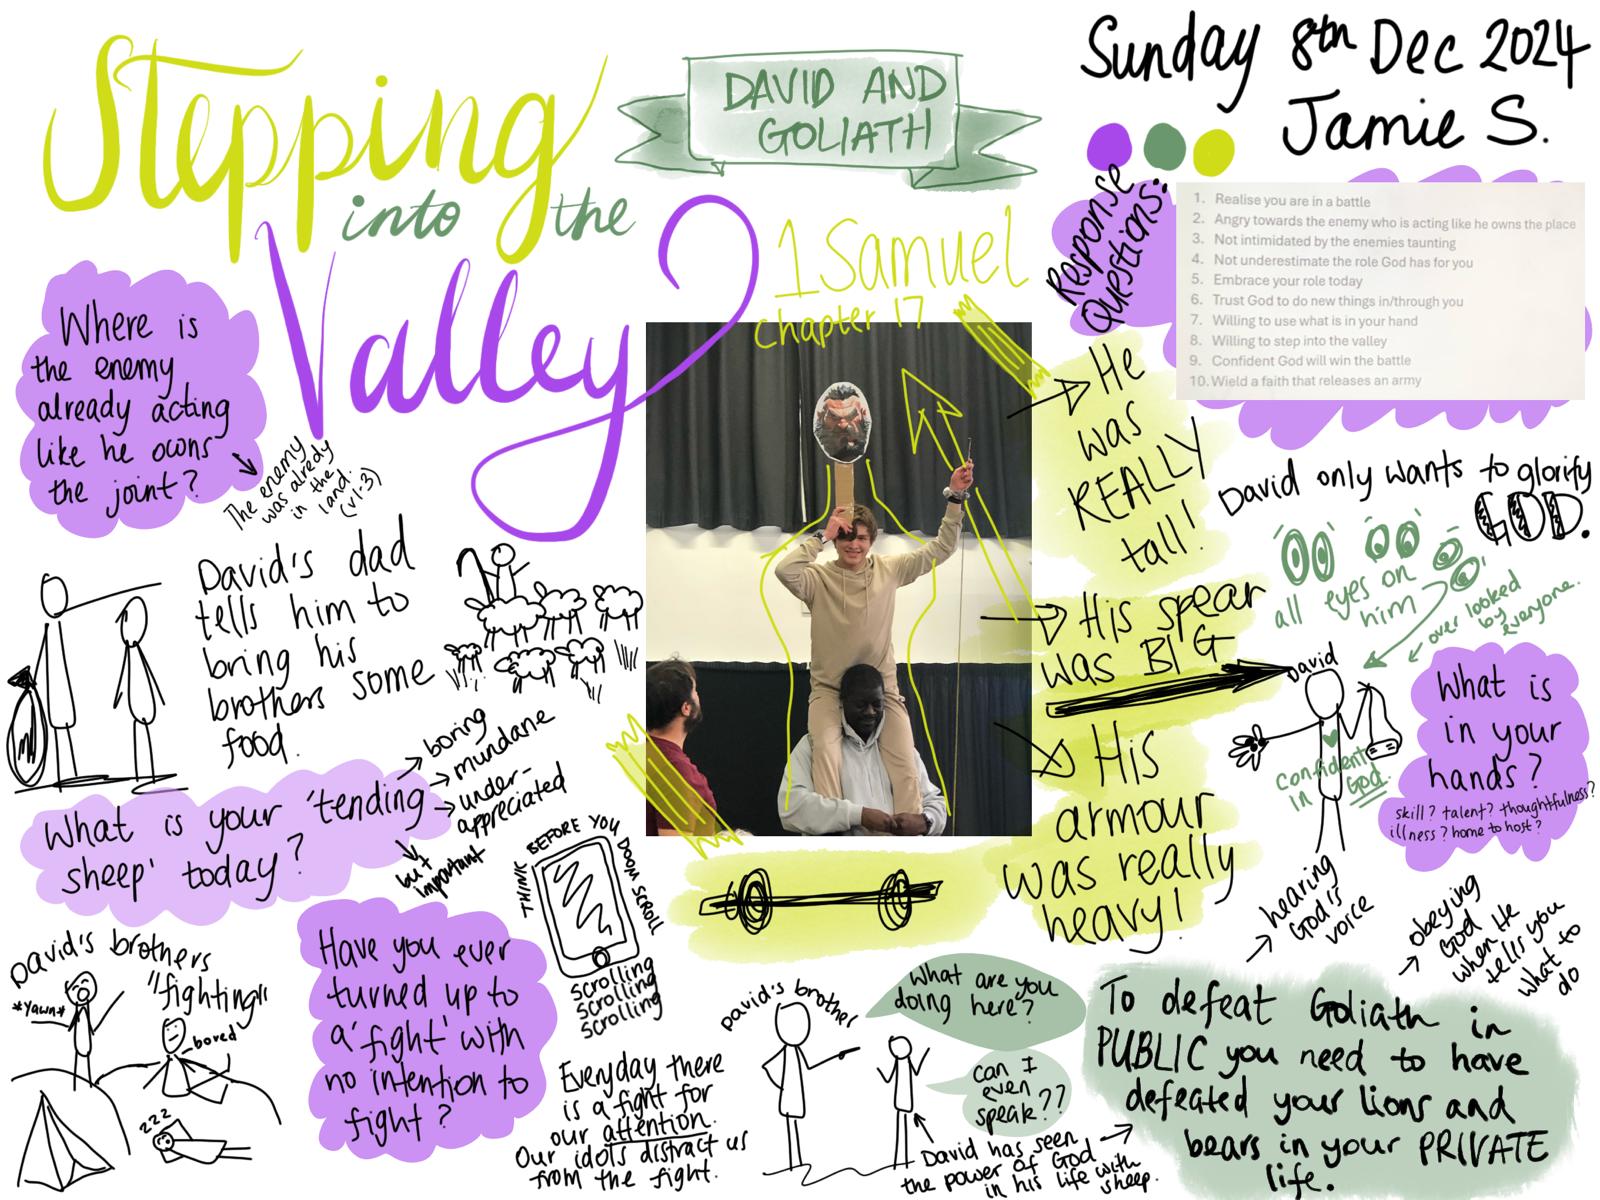 Stepping
into the
Valley
DAVID AND
GOLIATH
1 Samuel
Chapter 17
Sunday 8th Dec 2024
Jamie S.
Response
Questions:
1. Realise you are in a battle
2. Angry towards the enemy who is acting like he owns the place
3. Not intimidated by the enemies taunting
4. Not underestimate the role God has for you
5. Embrace your role today
6. Trust God to do new things in/through you
7. Willing to use what is in your hand
8. Willing to step into the valley
9. Confident God will win the battle
10. Wield a faith that releases an army
Where is
the enemy
already acting
like he owns
the joint?
The enemy
was already
in the
land.
(v1-3)
David's dad
tells him to
bring his
brothers some
food.
What is your 'tending
sheep' today?
boring
mundane
under-
appreciated
but
important
THINK BEFORE YOU DOOM SCROLL
scrolling
scrolling
scrolling
David's brothers
"fighting"
*yawn*
bored
zzz
Have you ever
turned up to
a 'fight' with
no intention to
fight?
Everyday there
is a fight for
our attention.
Our idols distract us
from the fight.
He
was
REALLY
tall!
His spear
was BIG
His
armour
was really
heavy!
David only wants to glorify
GOD.
all eyes on
him
over looked
by
everyone.
David
confident
in God.
What is
in your
hands?
skill? talent? thoughtfulness?
illness? home to host?
hearing
God's
voice
obeying
God
when He
tells you
what to
do
David's brother
What are you
doing here?
can I
even
speak??
David has seen
the power of God
in his life with
sheep.
To defeat Goliath in
PUBLIC you need to have
defeated your lions and
bears in your PRIVATE
life.